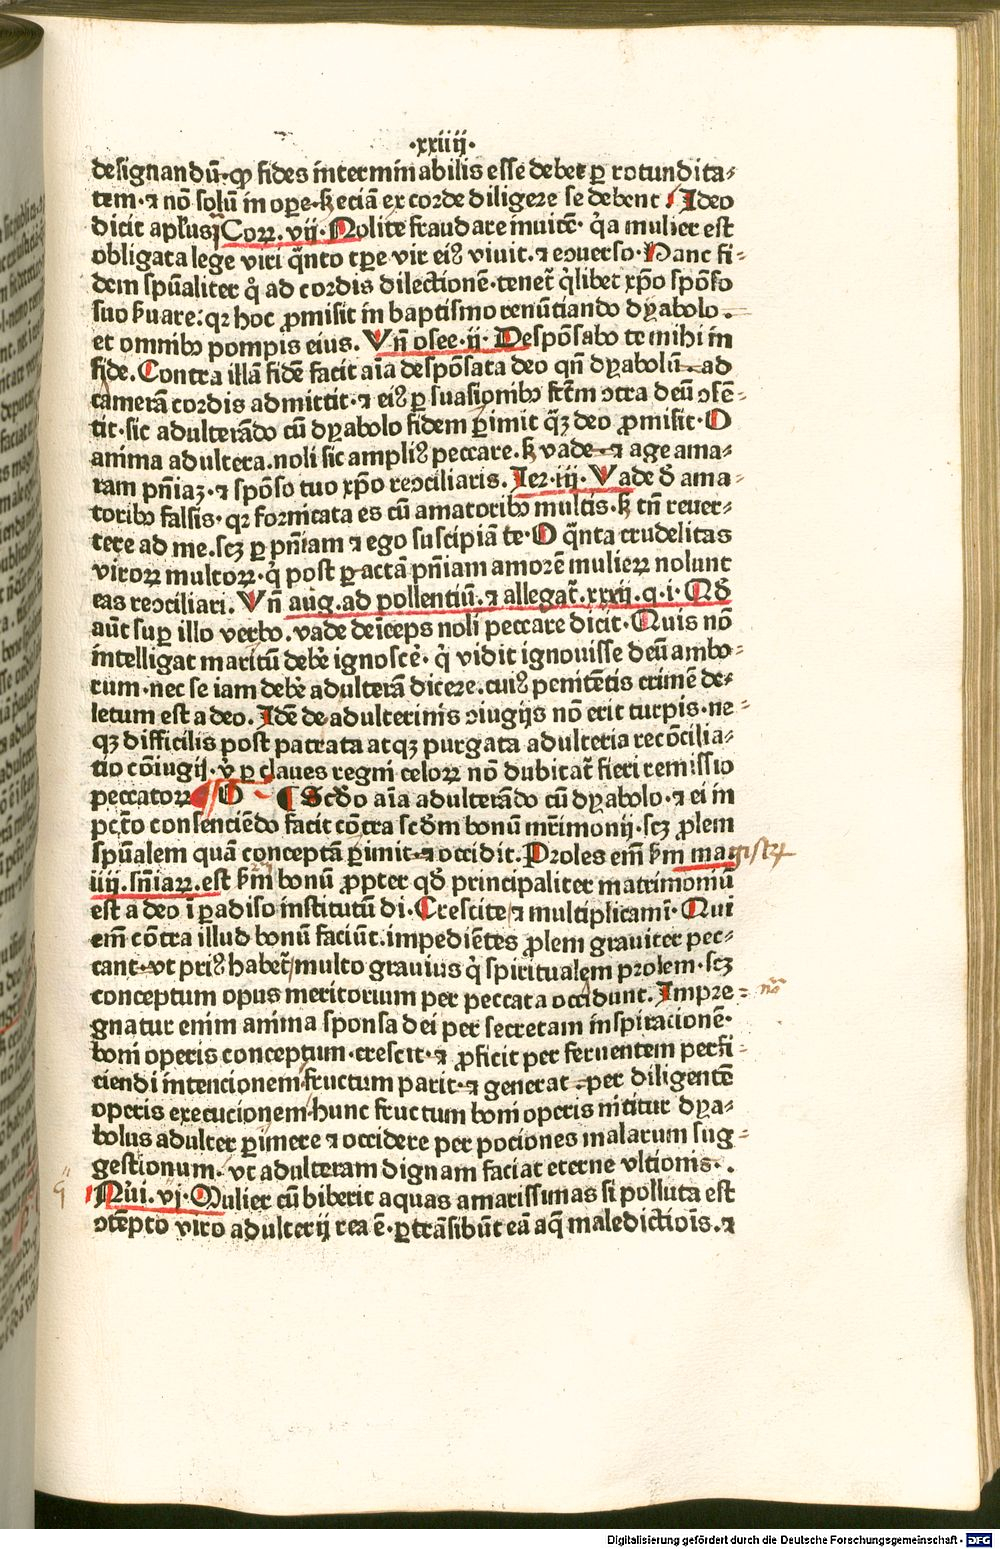 ·xxiiij·
designandū·ꝙ fides interminabilis esse debet ꝑ rotundita⸗
tem·⁊ nō solū in oꝑe·sꝫ eciā ex corde diligere se debent· Ideo
dicit apl'us Corꝝ·vij·Nolite fraudare inuicē·q̇a mulier est
obligata lege viri q̄nto tꝑe vir eiꝰ viuit·⁊ eↄuerso·Hanc fi⸗
dem spūaliter q̇ ad cordis dilectionē·tenet᷑ q̇libet xp̄o spōso
suo ẜuare:qꝛ hoc ꝓmisit in baptismo renūtiando dyabolo·
et omnibꝫ pompis eius. Vn̄ osee·ij· Despōsabo te mihi in
fide. Contra illā fidē facit aīa despōsata deo qn̄ dyabolū·ad
camerā cordis admittit·⁊ eiꝰ ꝑsuasionibꝫ fctm̄ ↄtra deū ↄsē⸗
tit·sic adulterādo cū dyabolo fidem ꝑimit q̄ꝫ deo ꝓmisit·O
anima adultera.noli sic ampliꝰ peccare.sꝫ vade·⁊ age ama⸗
ram pn̄iaꝫ·⁊ spōso tuo xp̄o reↄciliaris. Jer·iij·Vade ꝺ ama⸗
toribꝫ falsis·qꝛ fornicata es cū amatoribꝫ multis·sꝫ tn̄ reuer⸗
tere ad me.scꝫ ꝑ pn̄iam ⁊ ego suscipiā te·O q̄nta crudelitas
viroꝝ multoꝝ·q̇ post ꝑactā pn̄iam amorē mulieꝝ nolunt
eas reↄciliari. Vn̄ auḡ.ad pollentiū.⁊ allegat᷑.xxxij.q·i·Qđ
aūt suꝑ illo verbo.vade deīceps noli peccare dicit·Quis nō
intelligat maritū deb'e ignosc'e·q̇ vidit ignouisse deū ambo⸗
rum·nec se iam deb'e adulterā dicere.cuiꝰ penitētis crimē de⸗
letum est a deo. Idē de adulterinis ↄiugijs nō erit turpis·ne⸗
qꝫ difficilis post patrata atqꝫ purgata adulteria recōcilia⸗
tio cōiugij·v̇ ꝑ claues regni celoꝝ nō dubitat᷑ fieri remissio
peccatoꝝ ¶ O ¶ Scđo aīa adulterādo cū dyabolo·⁊ ei in
pctō consenciēdo facit cōtra scđm bonū mr̄imonij·scꝫ ꝓlem
spūalem quā conceptā ꝑimit·⁊ occidit. Proles em̄ ẜm ma·gistrꝝ
iiij.sn̄iaꝝ.est ẜm bonū ꝓpter qđ principaliter matrimoniū
est a deo ī ꝑadiso institutū di·Crescite ⁊ multiplicamī·Qui
em̄ cōtra illud bonū faciūt.impediētes ꝓlem grauiter pec⸗
cant·vt priꝰ habet᷑ multo grauius q̇ spiritualem prolem·scꝫ
conceptum opus meritorium per peccata occidunt. Impre⸗ nō
gnatur enim anima sponsa dei per secretam inspiracionē·
boni operis conceptum·crescit·⁊ ꝓficit per feruentem perfi⸗
ciendi intencionem·fructum parit·⁊ generat·per diligentē
operis execucionem·hunc fructum boni operis nititur dya⸗
bolus adulter ꝑimere ⁊ occidere per pociones malarum sug⸗
gestionum·vt adulteram dignam faciat eterne vltionis·.
Nūi.vj·Mulier cū biberit aquas amarissimas si polluta est
ↄtēpto viro adulterij rea ē·ꝑtrāsibūt eā aq̄ maledictiōis·⁊
Digitalisierung gefördert durch die Deutsche Forschungsgemeinschaft · DFG